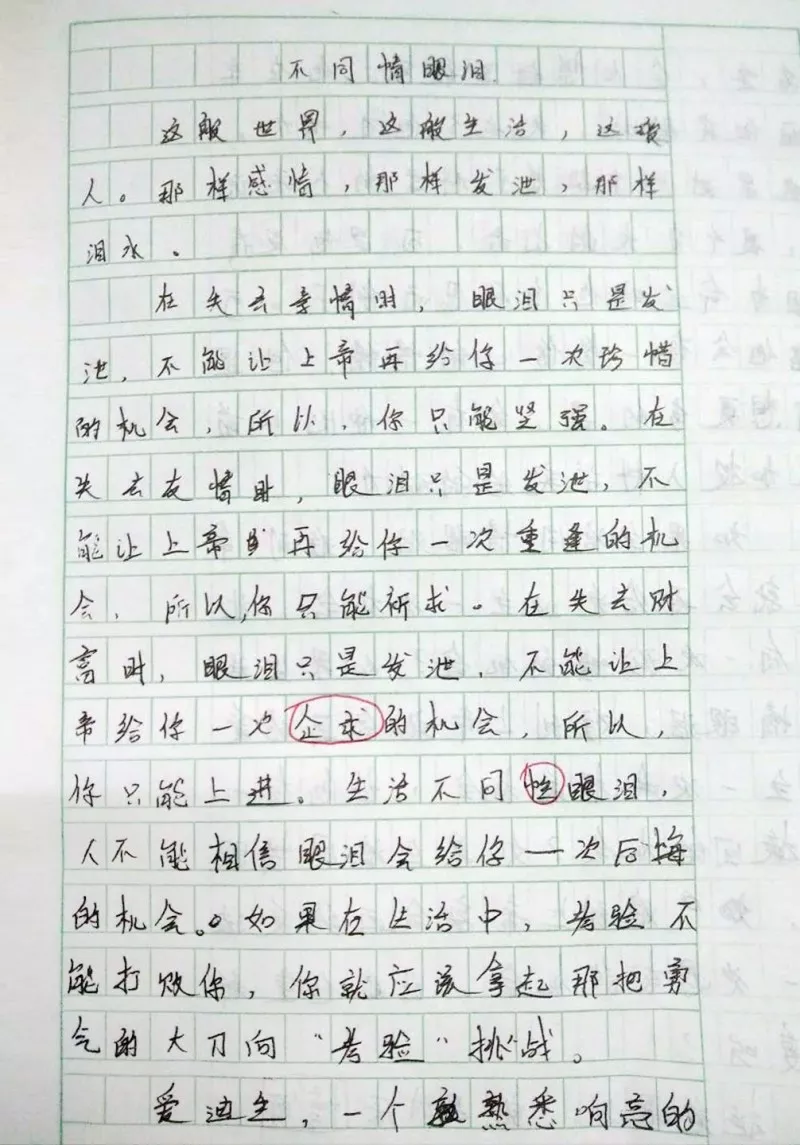 不同情眼泪
这般世界，这般生活，这般
人。那样感情，那样发泄，那样
泪水。
在失去亲情时，眼泪只是发
泄，不能让上帝再给你一次珍惜
的机会，所以，你只能坚强。在
失去友情时，眼泪只是发泄，不
能让上帝再给你一次重逢的机
会，所以，你只能祈求。在失去财
富时，眼泪只是发泄，不能让上
帝给你一次企求的机会，所以，
你只能上进。生活不同眼泪，
人不能相信眼泪会给你一次后悔
的机会。如果在生活中，考验不
能打败你，你就应该拿起那把勇
气的大刀向“考验”挑战。
爱迪生，一个熟悉响亮的